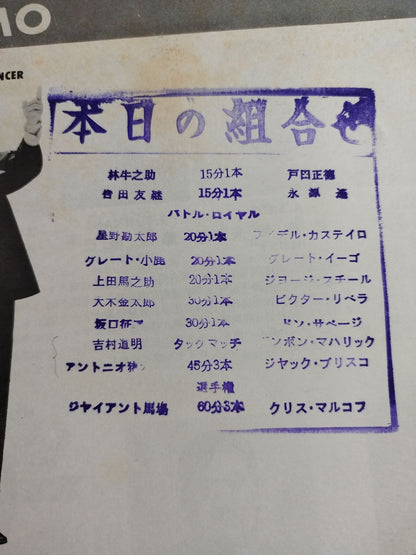 MO
NCER
本日の組合せ
林牛之助 15分1本 戸口正徳
吉田友継 15分1本 永源遙
バトル・ロイヤル
星野勘太郎 20分1本 フィデル・カステイロ
グレート・小鹿 20分1本 グレート・イーゴ
上田馬之助 20分1本 ジョージ・スチール
大木金太郎 30分1本 ビクター・リベラ
坂口征 30分1本 ドン・サベージ
吉村道明 タックマッチ マハリック
アントニオ 45分3本 ジャック・ブリスコ
選手権
ジャイアント馬場 60分3本 クリス・マルコフ